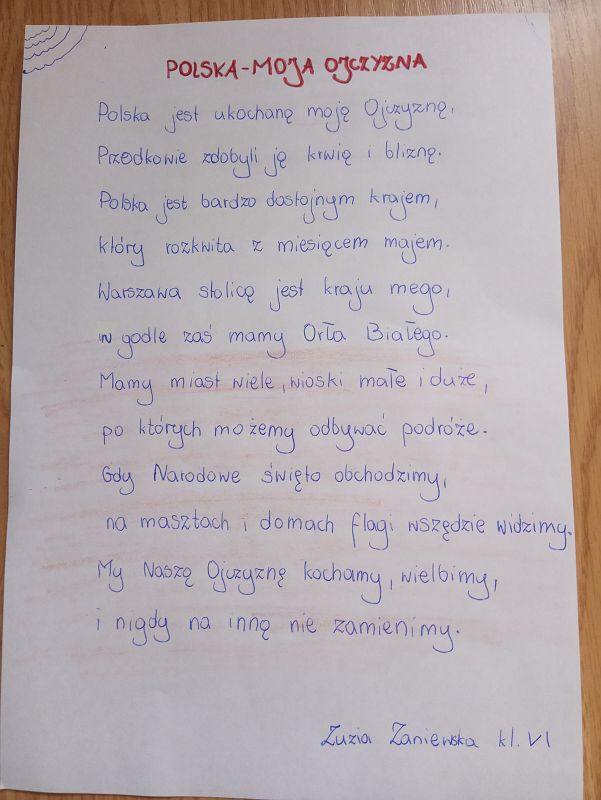 POLSKA-MOJA OJCZYZNA
Polska jest ukochaną moją Ojczyzną,
Przodkowie zdobyli ją krwią i blizną.
Polska jest bardzo dostojnym krajem,
który rozkwita z miesiącem majem.
Warszawa stolicą jest kraju mego,
w godle zaś mamy Orła Białego.
Mamy miast wiele, wioski małe i duże,
po których możemy odbywać podróże.
Gdy Narodowe święto obchodzimy,
na masztach i domach flagi wszędzie widzimy.
My Naszą Ojczyznę kochamy, wielbimy,
i nigdy na inną nie zamienimy.
Zuzia Zaniewska kl. VI